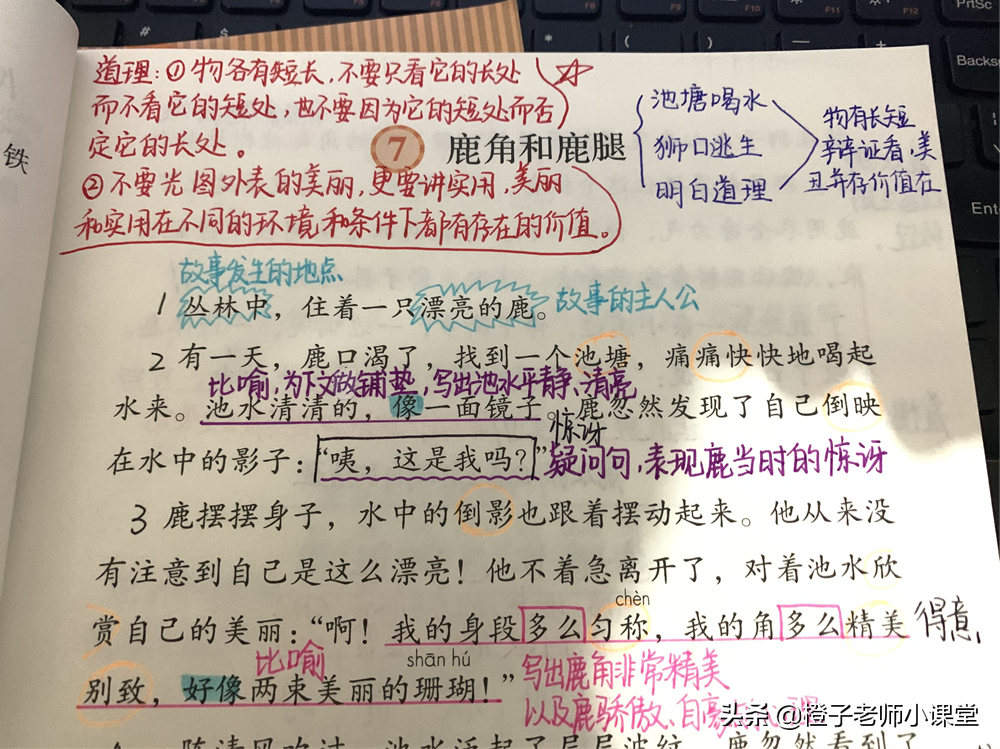 道理：①物各有短长，不要只看它的长处
而不看它的短处，也不要因为它的短处而否
定它的长处。
7 鹿角和鹿腿
池塘喝水
狮口逃生
明白道理
物有长短
辩证看，美
丑并存价值在
②不要光图外表的美丽，更要讲实用，美丽
和实用在不同的环境和条件下都有存在的价值。
铁
故事发生的地点
1 丛林中，住着一只漂亮的鹿。故事的主人公
2 有一天，鹿口渴了，找到一个池塘，痛痛快快地喝起
比喻，为下文做铺垫，写出池水平静、清亮
水来。池水清清的，像一面镜子。鹿忽然发现了自己倒映
惊讶
在水中的影子：“咦，这是我吗？”疑问句，表现鹿当时的惊讶
3 鹿摆摆身子，水中的倒影也跟着摆动起来。他从来没
有注意到自己是这么漂亮！他不着急离开了，对着池水欣
chèn
赏自己的美丽：“啊！我的身段多么匀称，我的角多么精美 得意
比喻
shān hú
别致，好像两束美丽的珊瑚！”
写出鹿角非常精美
以及鹿骄傲、自豪
头条 @橙子老师小课堂
F10
F11
F12
PrtSc
Backs
Ente